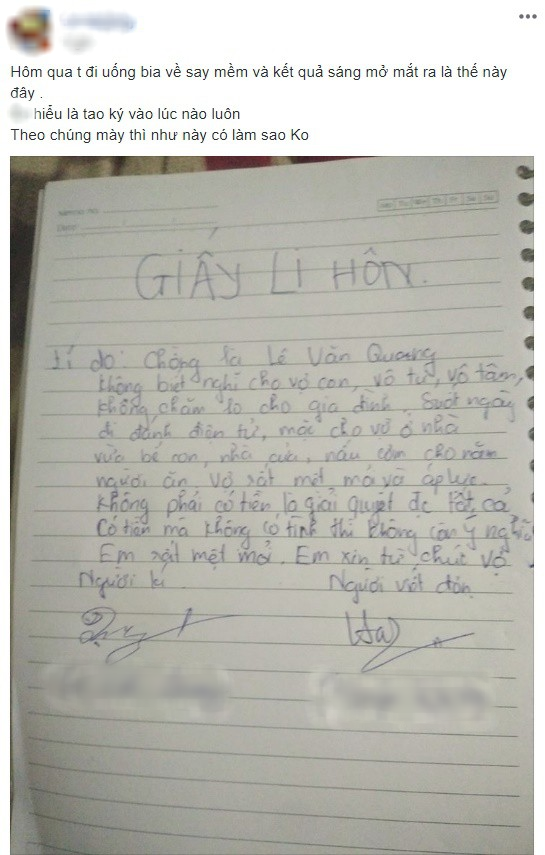 Hôm qua t đi uống bia về say mềm và kết quả sáng mở mắt ra là thế này
đây .
hiểu là tao ký vào lúc nào luôn
Theo chúng mày thì như này có làm sao Ko
Date:
GIẤY LI HÔN.
Lí do: Chồng là Lê Văn Quang
không biết nghĩ cho vợ con, vô tư, vô tâm,
không chăm lo cho gia đình. Suốt ngày
đi đánh điện tử, mặc cho vợ ở nhà
vừa bế con, nhà cửa, nấu cơm cho năm
người ăn. Vợ rất mệt mỏi và áp lực.
Không phải có tiền là giải quyết đc tất cả
Có tiền mà không có tình thì không còn ý nghĩa
Em rất mệt mỏi. Em xin từ chức vợ
Người kí
Người viết đơn